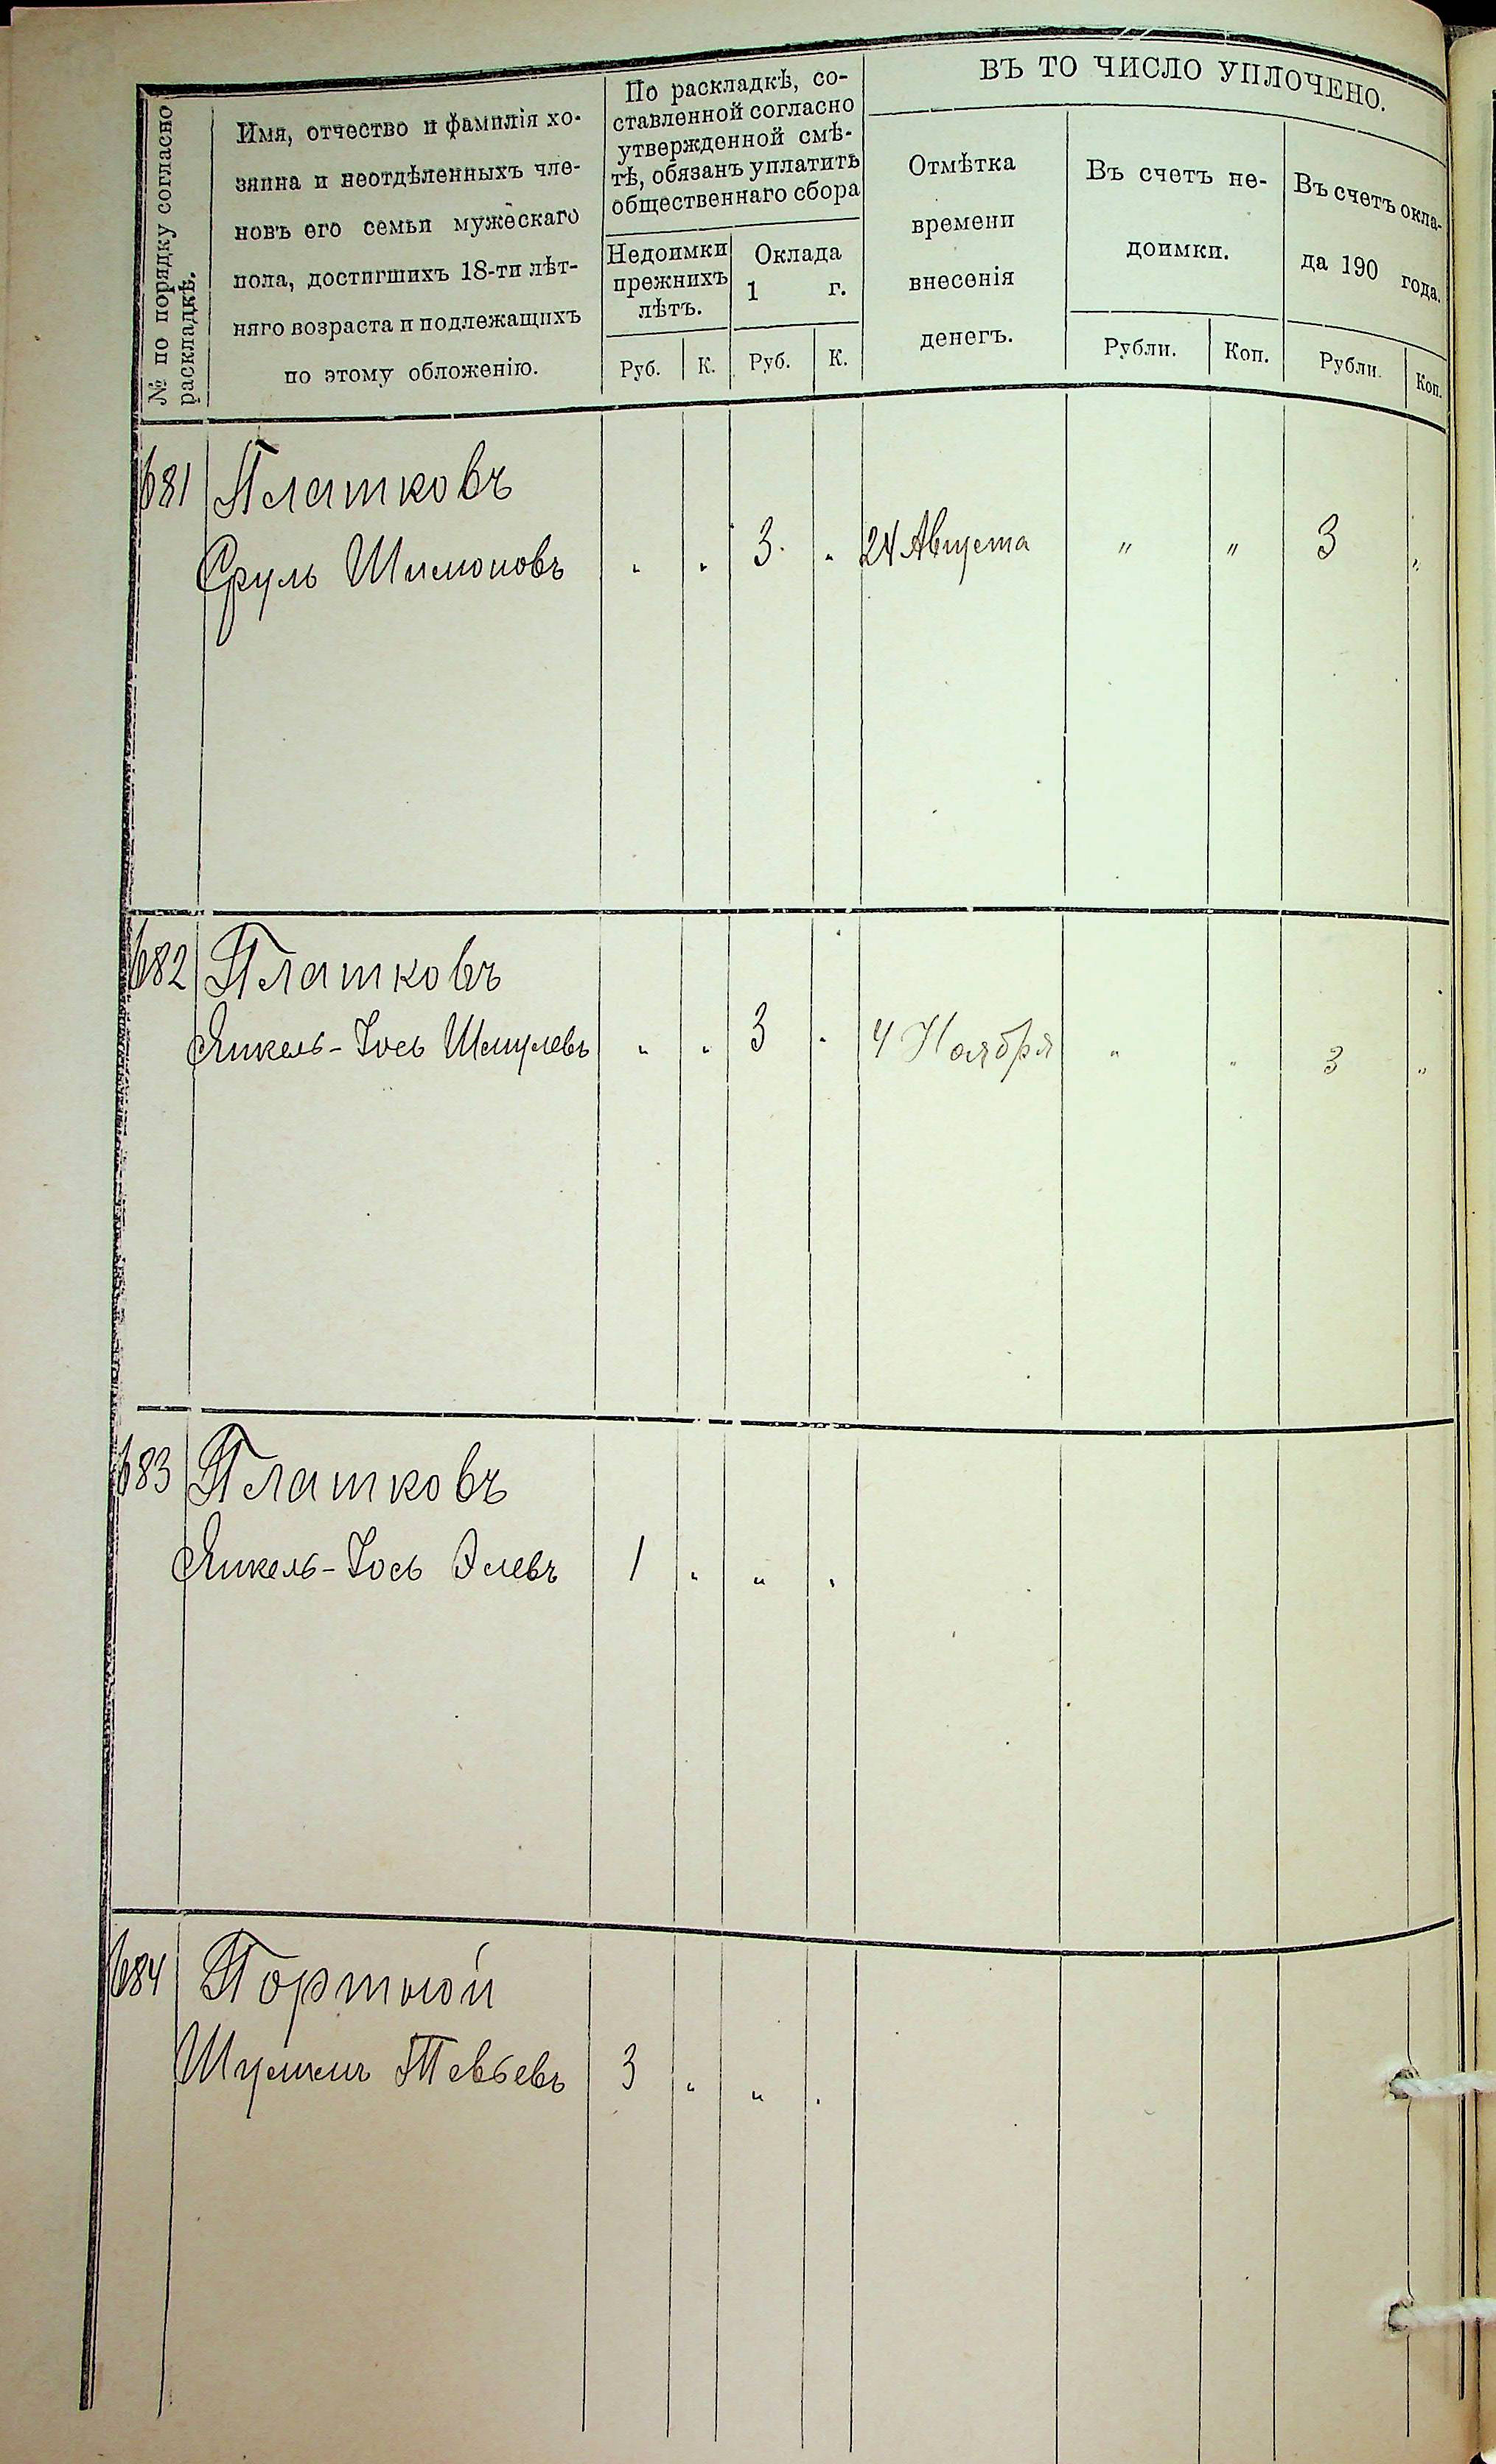 ВЪ ТО ЧИСЛО УПЛОЧЕНО.
№ по порядку согласно
раскладкѣ.
Имя, отчество и фамилія хо-
зяина и неотдѣленныхъ чле-
новъ его семьи мужескаго
пола, достигшихъ 18-ти лѣт-
няго возраста и подлежащихъ
по этому обложенію.
По раскладкѣ, со-
ставленной согласно
утвержденной смѣ-
тѣ, обязанъ уплатить
общественнаго сбора
Недоимки
прежнихъ
лѣтъ.
Оклада
1 г.
Отмѣтка
времени
внесенія
денегъ.
Въ счетъ не-
доимки.
Въ счетъ окла-
да 190 года.
Руб. К. Руб. К. Рубли. Коп. Рубли. Коп.
681 Платковъ
Сруль Шимоновъ „ „ 3 „ 24 Августа „ „ 3 „
682 Платковъ
Янкель-Іось Шмулевъ „ „ 3 „ 4 Ноября „ „ 3 „
683 Платковъ
Янкель-Іось Элевъ 1 „ „ „
684 Портной
Тевьевъ 3 „ „ „